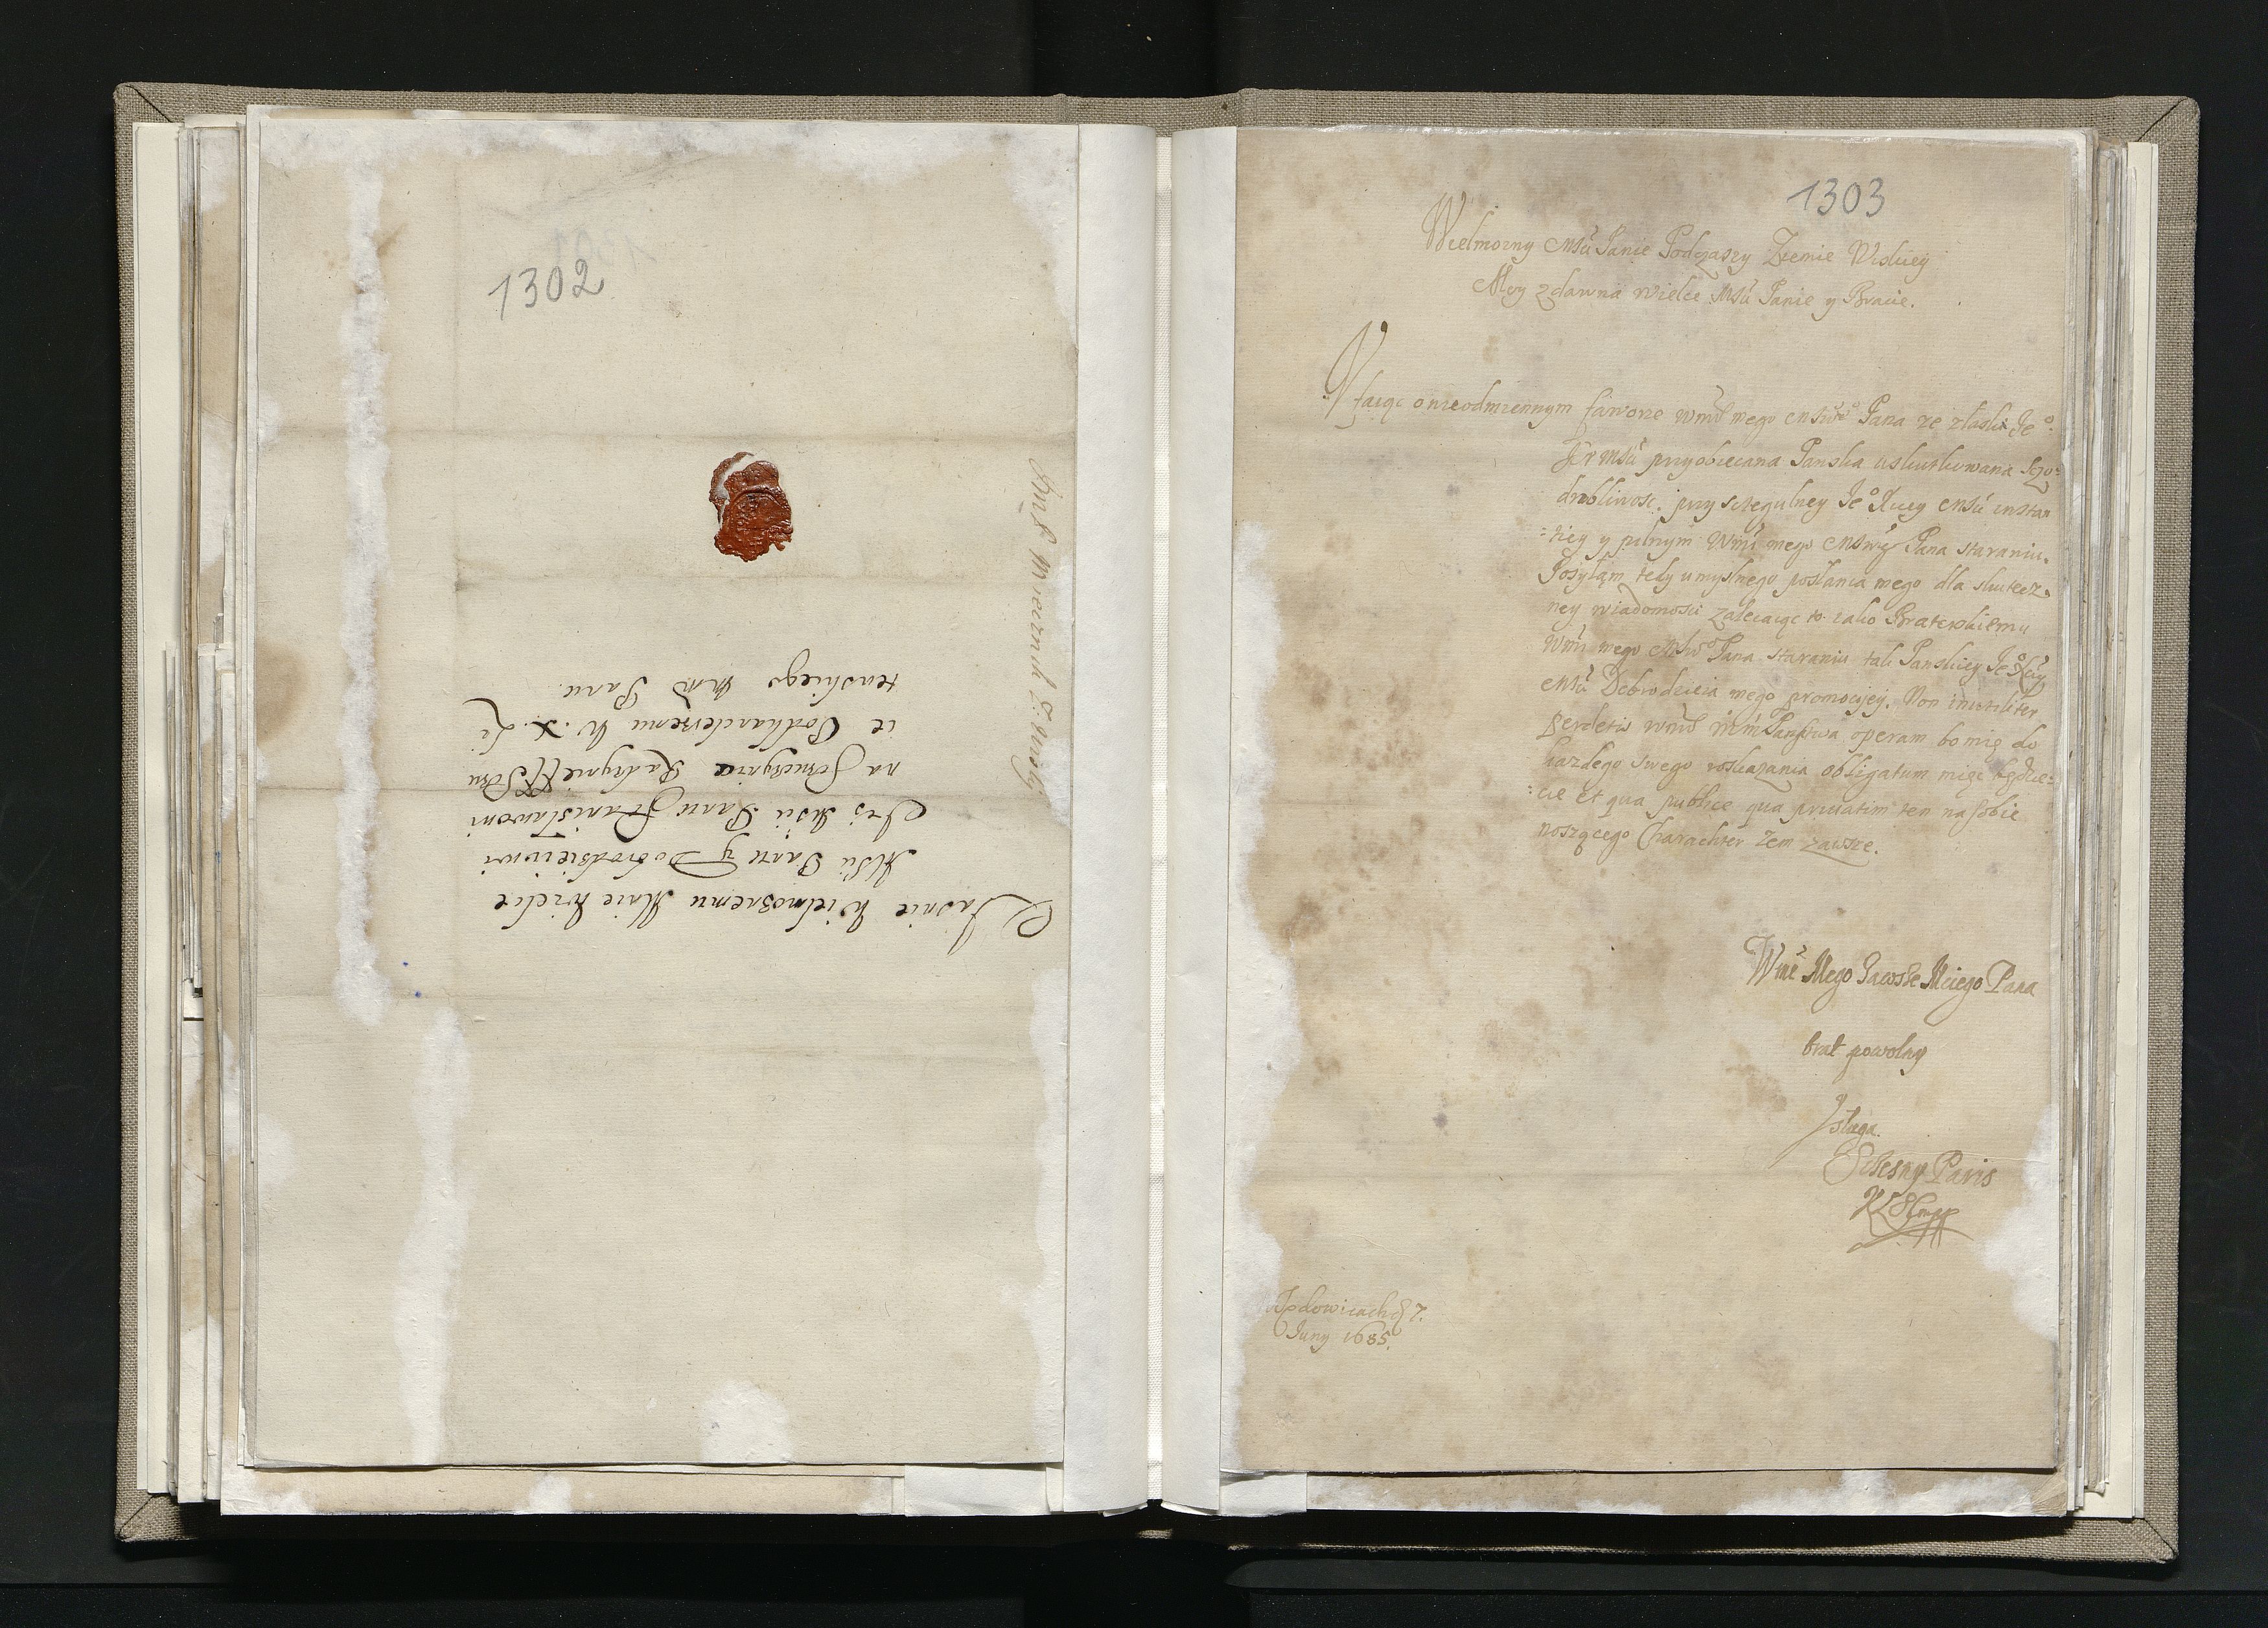 1302
Jasnie Wielmoznemu Mnie Wielce
Msci Panu y Dobrodzieiowi
Jeo Msci Panu Stanisławowi
na Radzynie
ie Podkanclerzemu W. X. Li
tewskiego Panu
1303
Wielmozny Msci Panie Podczaszy Ziemie Wiskiey
Moy zdawna wielce Msci Panie y Bracie.
Vfaiąc o nieodmiennym faworze wmci mego Pana ze złaski Jeo
Kr Msci przyobiecana Panska uskutkowana Szczo-
drobliwosc. przy sczegulney Jeo Msci instan
-tiey y pilnym Wmci mego Mswgo Pana staraniu.
Posyłąm tedy umyslnego posłanca mego dla skutecz-
ney wiadomosci zalecaiąc to iako Braterskiemu
Wmci mego Mswo Pana staraniu tak Panskiey Jeo
Msci Dobrodzieia mego promocyey. Non inutiliter
perdetis operam bo mię do
kazdego swego roskazania obligatum mięc będzie-
cie et qua publice qua priuatim ten na sobie
noszącego Charachter zem zawsze.
Wmci Mego Zawsze Mciego Pana
brat powolny
y sługa
Sczesny Paris
7.
Juny 1685.